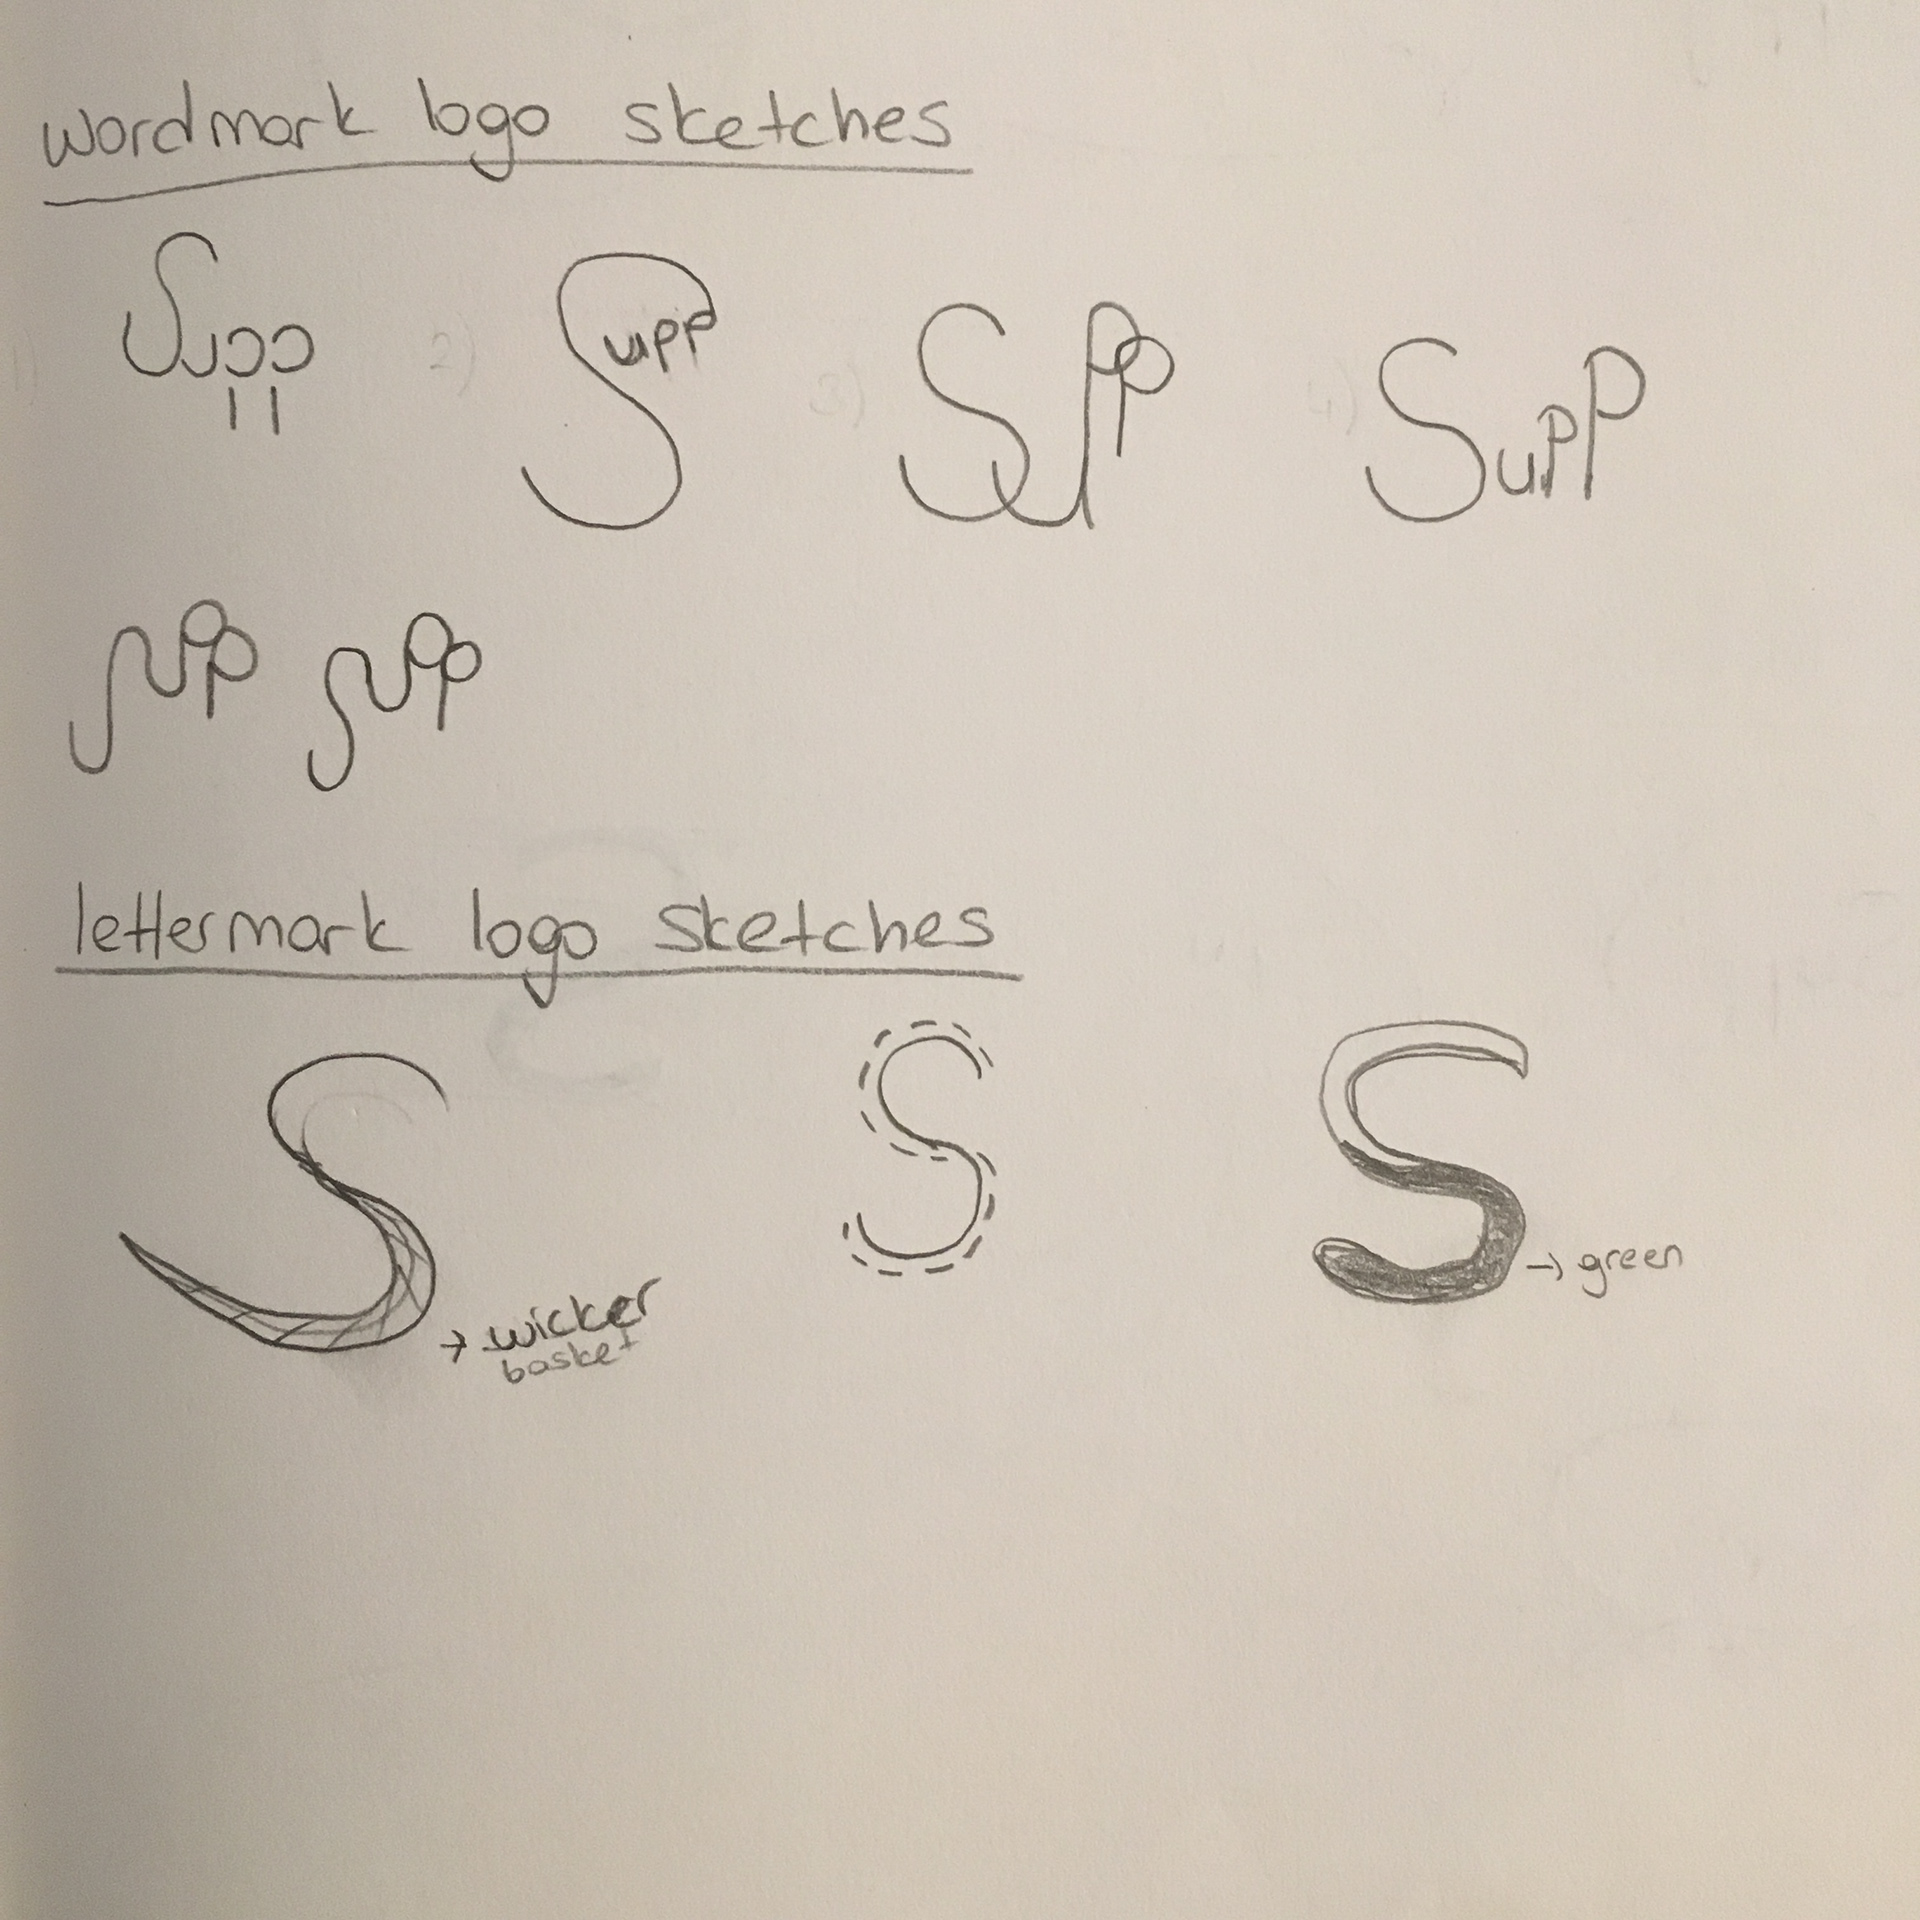 wordmark logo sketches
1) Supp 2) Supp 3) Supp 4) Supp
Supp Supp
lettermark logo sketches
S S S
→ green
→ wicker
basket